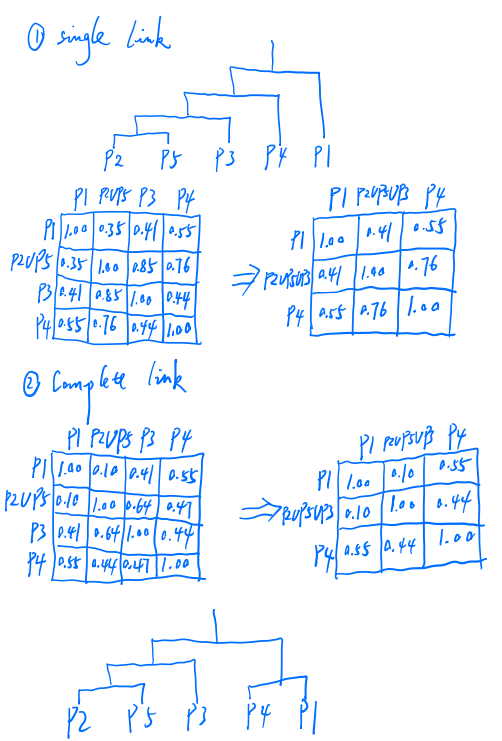 ① single link
P2 P5 P3 P4 P1
P1 P2UP5 P3 P4
P1 1.00 0.35 0.41 0.55
P2UP5 0.35 1.00 0.85 0.76
P3 0.41 0.85 1.00 0.44
P4 0.55 0.76 0.44 1.00
⇒
P1 P2UP5UP3 P4
P1 1.00 0.41 0.55
P2UP5UP3 0.41 1.00 0.76
P4 0.55 0.76 1.00
② Complete link
P1 P2UP5 P3 P4
P1 1.00 0.10 0.41 0.55
P2UP5 0.10 1.00 0.64 0.47
P3 0.41 0.64 1.00 0.44
P4 0.55 0.44 0.47 1.00
⇒
P1 P2UP5UP3 P4
P1 1.00 0.10 0.55
P2UP5UP3 0.10 1.00 0.44
P4 0.55 0.44 1.00
P2 P5 P3 P4 P1